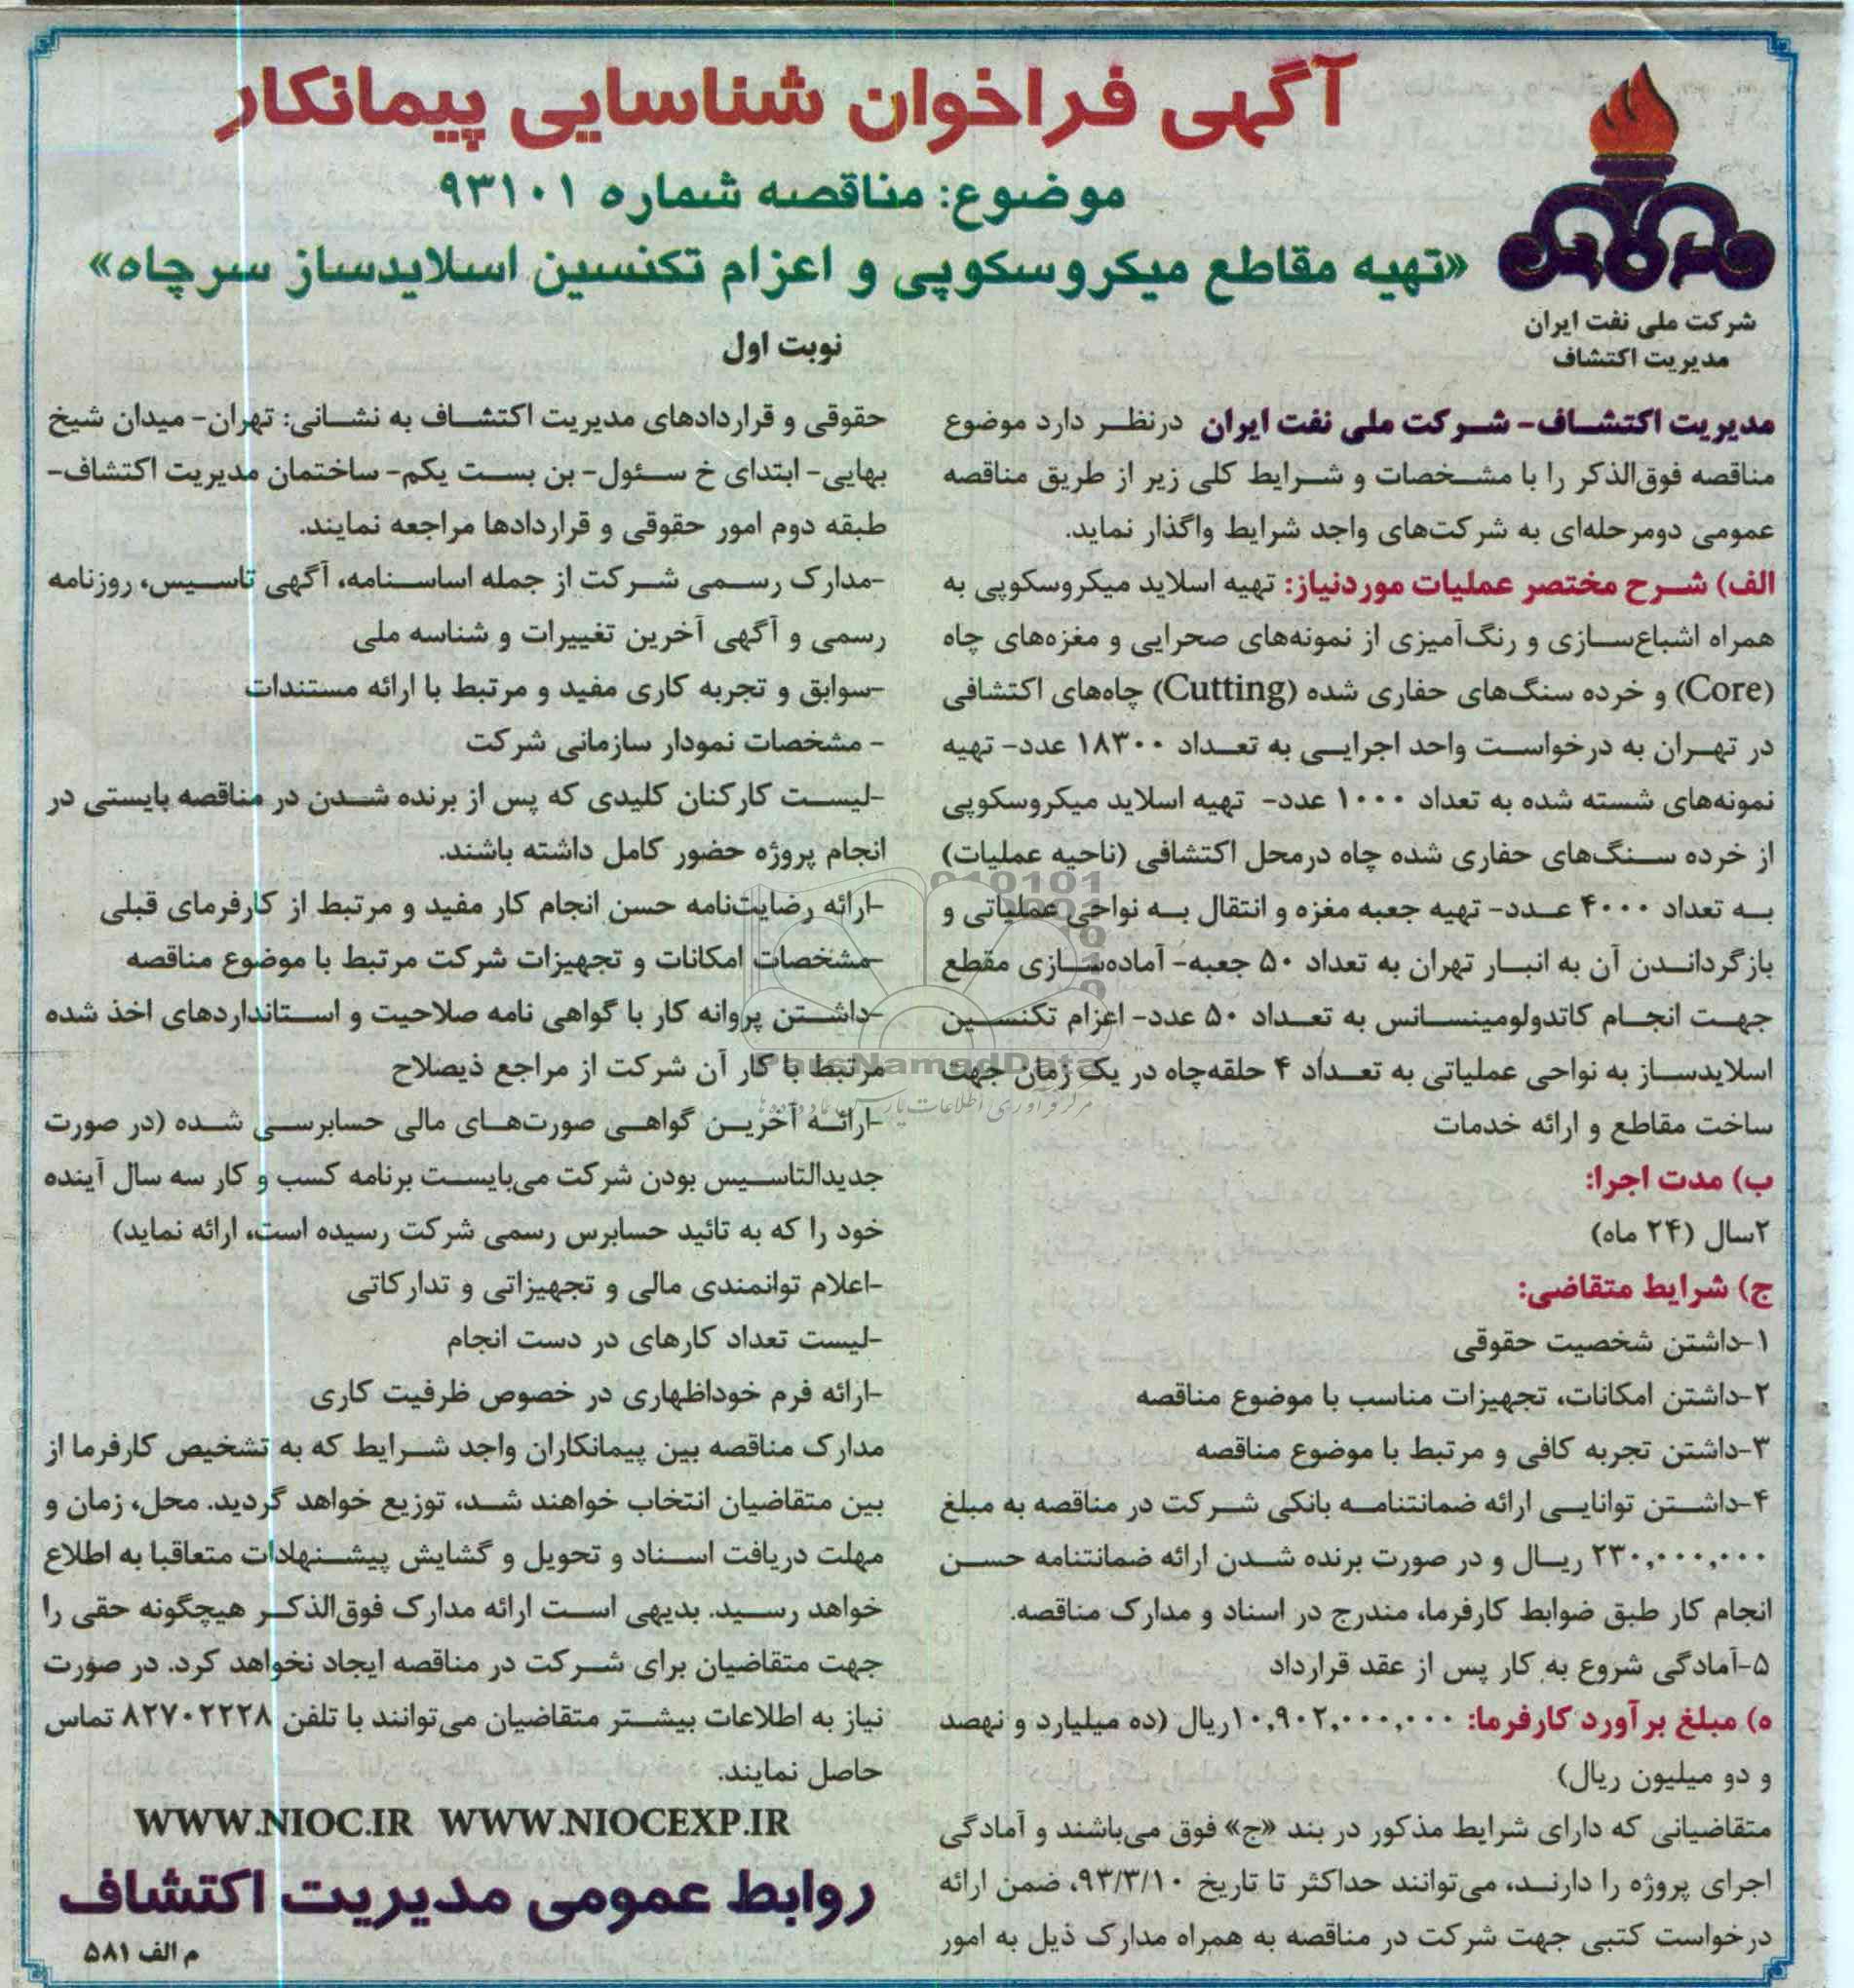 آگهی فراخوان شناسایی پیمانکار
موضوع: مناقصه شماره ۹۳۱۰۱
«تهیه مقاطع میکروسکوپی و اعزام تکنسین اسلایدساز سرچاه»
شرکت ملی نفت ایران
مدیریت اکتشاف
نوبت اول
مدیریت اکتشاف- شرکت ملی نفت ایران درنظر دارد موضوع
مناقصه فوق‌الذکر را با مشخصات و شرایط کلی زیر از طریق مناقصه
عمومی دومرحله‌ای به شرکت‌های واجد شرایط واگذار نماید.
الف) شرح مختصر عملیات موردنیاز: تهیه اسلاید میکروسکوپی به
همراه اشباع‌سازی و رنگ‌آمیزی از نمونه‌های صحرایی و مغزه‌های چاه
(Core) و خرده سنگ‌های حفاری شده (Cutting) چاه‌های اکتشافی
در تهران به درخواست واحد اجرایی به تعداد ۱۸۳۰۰ عدد- تهیه
نمونه‌های شسته شده به تعداد ۱۰۰۰ عدد- تهیه اسلاید میکروسکوپی
از خرده سنگ‌های حفاری شده چاه درمحل اکتشافی (ناحیه عملیات)
به تعداد ۴۰۰۰ عدد- تهیه جعبه مغزه و انتقال به نواحی عملیاتی و
بازگرداندن آن به انبار تهران به تعداد ۵۰ جعبه- آماده‌سازی مقطع
جهت انجام کاتدولومینسانس به تعداد ۵۰ عدد- اعزام تکنسین
اسلایدساز به نواحی عملیاتی به تعداد ۴ حلقه‌چاه در یک زمان جهت
ساخت مقاطع و ارائه خدمات
ب) مدت اجرا:
۲سال (۲۴ ماه)
ج) شرایط متقاضی:
۱-داشتن شخصیت حقوقی
۲-داشتن امکانات، تجهیزات مناسب با موضوع مناقصه
۳-داشتن تجربه کافی و مرتبط با موضوع مناقصه
۴-داشتن توانایی ارائه ضمانتنامه بانکی شرکت در مناقصه به مبلغ
۲۳۰,۰۰۰,۰۰۰ ریال و در صورت برنده شدن ارائه ضمانتنامه حسن
انجام کار طبق ضوابط کارفرما، مندرج در اسناد و مدارک مناقصه.
۵-آمادگی شروع به کار پس از عقد قرارداد
ه) مبلغ برآورد کارفرما: ۱۰,۹۰۲,۰۰۰,۰۰۰ریال (ده میلیارد و نهصد
و دو میلیون ریال)
متقاضیانی که دارای شرایط مذکور در بند «ج» فوق می‌باشند و آمادگی
اجرای پروژه را دارند، می‌توانند حداکثر تا تاریخ ۹۳/۳/۱۰، ضمن ارائه
درخواست کتبی جهت شرکت در مناقصه به همراه مدارک ذیل به امور
حقوقی و قراردادهای مدیریت اکتشاف به نشانی: تهران- میدان شیخ
بهایی- ابتدای خ سئول- بن بست یکم- ساختمان مدیریت اکتشاف-
طبقه دوم امور حقوقی و قراردادها مراجعه نمایند.
-مدارک رسمی شرکت از جمله اساسنامه، آگهی تاسیس، روزنامه
رسمی و آگهی آخرین تغییرات و شناسه ملی
-سوابق و تجربه کاری مفید و مرتبط با ارائه مستندات
- مشخصات نمودار سازمانی شرکت
-لیست کارکنان کلیدی که پس از برنده شدن در مناقصه بایستی در
انجام پروژه حضور کامل داشته باشند.
-ارائه رضایت‌نامه حسن انجام کار مفید و مرتبط از کارفرمای قبلی
-مشخصات امکانات و تجهیزات شرکت مرتبط با موضوع مناقصه
-داشتن پروانه کار با گواهی نامه صلاحیت و استانداردهای اخذ شده
مرتبط با کار آن شرکت از مراجع ذیصلاح
-ارائه آخرین گواهی صورت‌های مالی حسابرسی شده (در صورت
جدیدالتاسیس بودن شرکت می‌بایست برنامه کسب و کار سه سال آینده
خود را که به تائید حسابرس رسمی شرکت رسیده است، ارائه نماید)
-اعلام توانمندی مالی و تجهیزاتی و تدارکاتی
-لیست تعداد کارهای در دست انجام
-ارائه فرم خوداظهاری در خصوص ظرفیت کاری
مدارک مناقصه بین پیمانکاران واجد شرایط که به تشخیص کارفرما از
بین متقاضیان انتخاب خواهند شد، توزیع خواهد گردید. محل، زمان و
مهلت دریافت اسناد و تحویل و گشایش پیشنهادات متعاقبا به اطلاع
خواهد رسید. بدیهی است ارائه مدارک فوق‌الذکر هیچگونه حقی را
جهت متقاضیان برای شرکت در مناقصه ایجاد نخواهد کرد. در صورت
نیاز به اطلاعات بیشتر متقاضیان می‌توانند با تلفن ۸۲۷۰۲۲۲۸ تماس
حاصل نمایند.
WWW.NIOC.IR WWW.NIOCEXP.IR
روابط عمومی مدیریت اکتشاف
م الف ۵۸۱
ParsNamadData